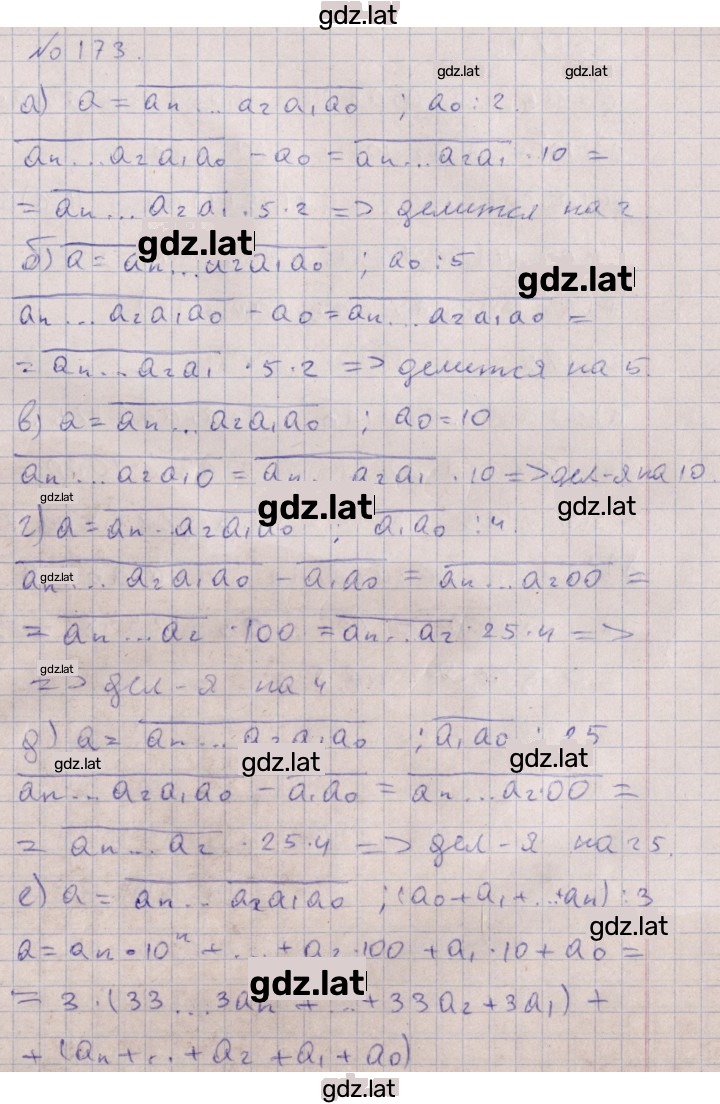 gdz.lat
№ 173.
gdz.lat gdz.lat
а) a = an ... a2 a1 a0 ; a0 : 2.
an ... a2 a1 a0 - a0 = an ... a2 a1 · 10 =
= an ... a2 a1 · 5 · 2 => делится на 2.
gdz.lat
б) a = an ... a2 a1 a0 ; a0 : 5
gdz.lat
an ... a2 a1 a0 - a0 = an ... a2 a1 a0 =
= an ... a2 a1 · 5 · 2 => делится на 5.
в) a = an ... a2 a1 a0 ; a0 = 10
an ... a2 a1 0 = an ... a2 a1 · 10 => дел-я на 10.
gdz.lat gdz.lat gdz.lat
г) a = an ... a2 a1 a0 ; a1 a0 : 4.
an ... a2 a1 a0 - a1 a0 = an ... a2 00 =
gdz.lat
= an ... a2 · 100 = an .. a2 · 25 · 4 =>
gdz.lat
=> дел-я на 4
д) a = an ... a2 a1 a0 ; a1 a0 : 25
gdz.lat gdz.lat gdz.lat
an ... a2 a1 a0 - a1 a0 = an ... a2·00 =
= an ... a2 · 25 · 4 => дел-я на 25.
е) a = an ... a2 a1 a0 ; (a0 + a1 + ... + an) : 3
gdz.lat
a = an · 10ⁿ + ... + a2 · 100 + a1 · 10 + a0 =
gdz.lat
= 3 · (33 ... 3an + ... + 33a2 + 3a1) +
+ (an + ... + a2 + a1 + a0)
gdz.lat